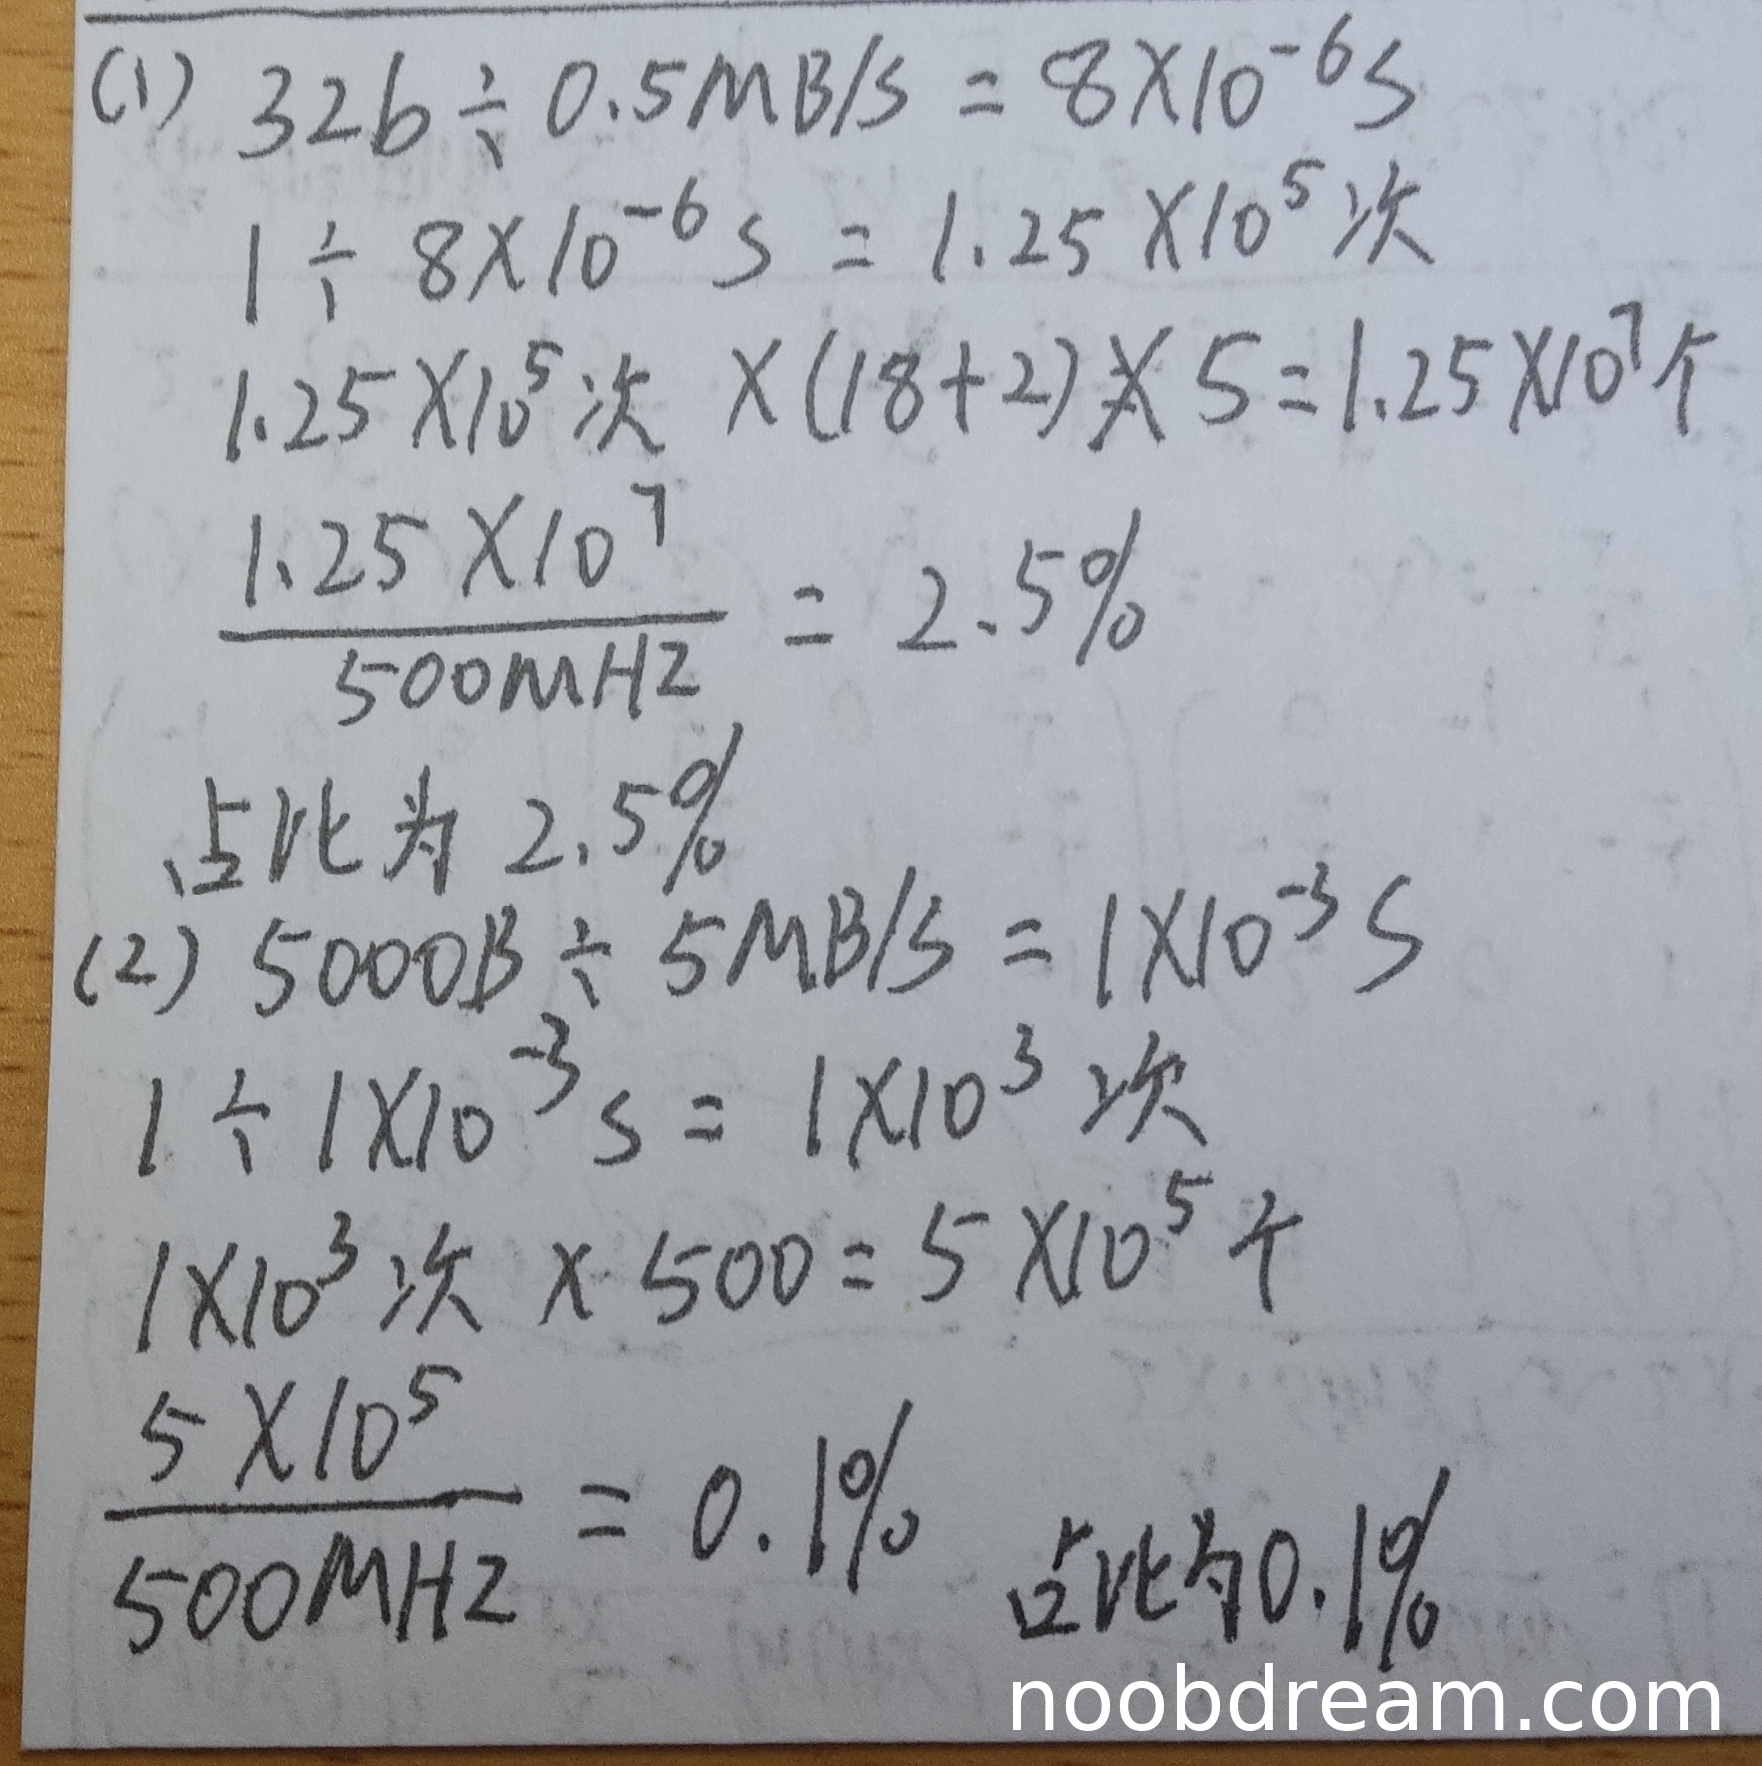 (1) 32b ÷ 0.5MB/s = 8×10⁻⁶s
1 ÷ 8×10⁻⁶s = 1.25×10⁵次
1.25×10⁵次 ×(18+2)×5=1.25×10⁷个
1.25×10⁷
500MHz
= 2.5%
占比为 2.5%
(2) 5000B ÷ 5MB/s = 1×10⁻³s
1 ÷ 1×10⁻³s = 1×10³次
1×10³次 × 500=5×10⁵个
5×10⁵
500MHz
= 0.1%
占比为0.1%
noobdream.com